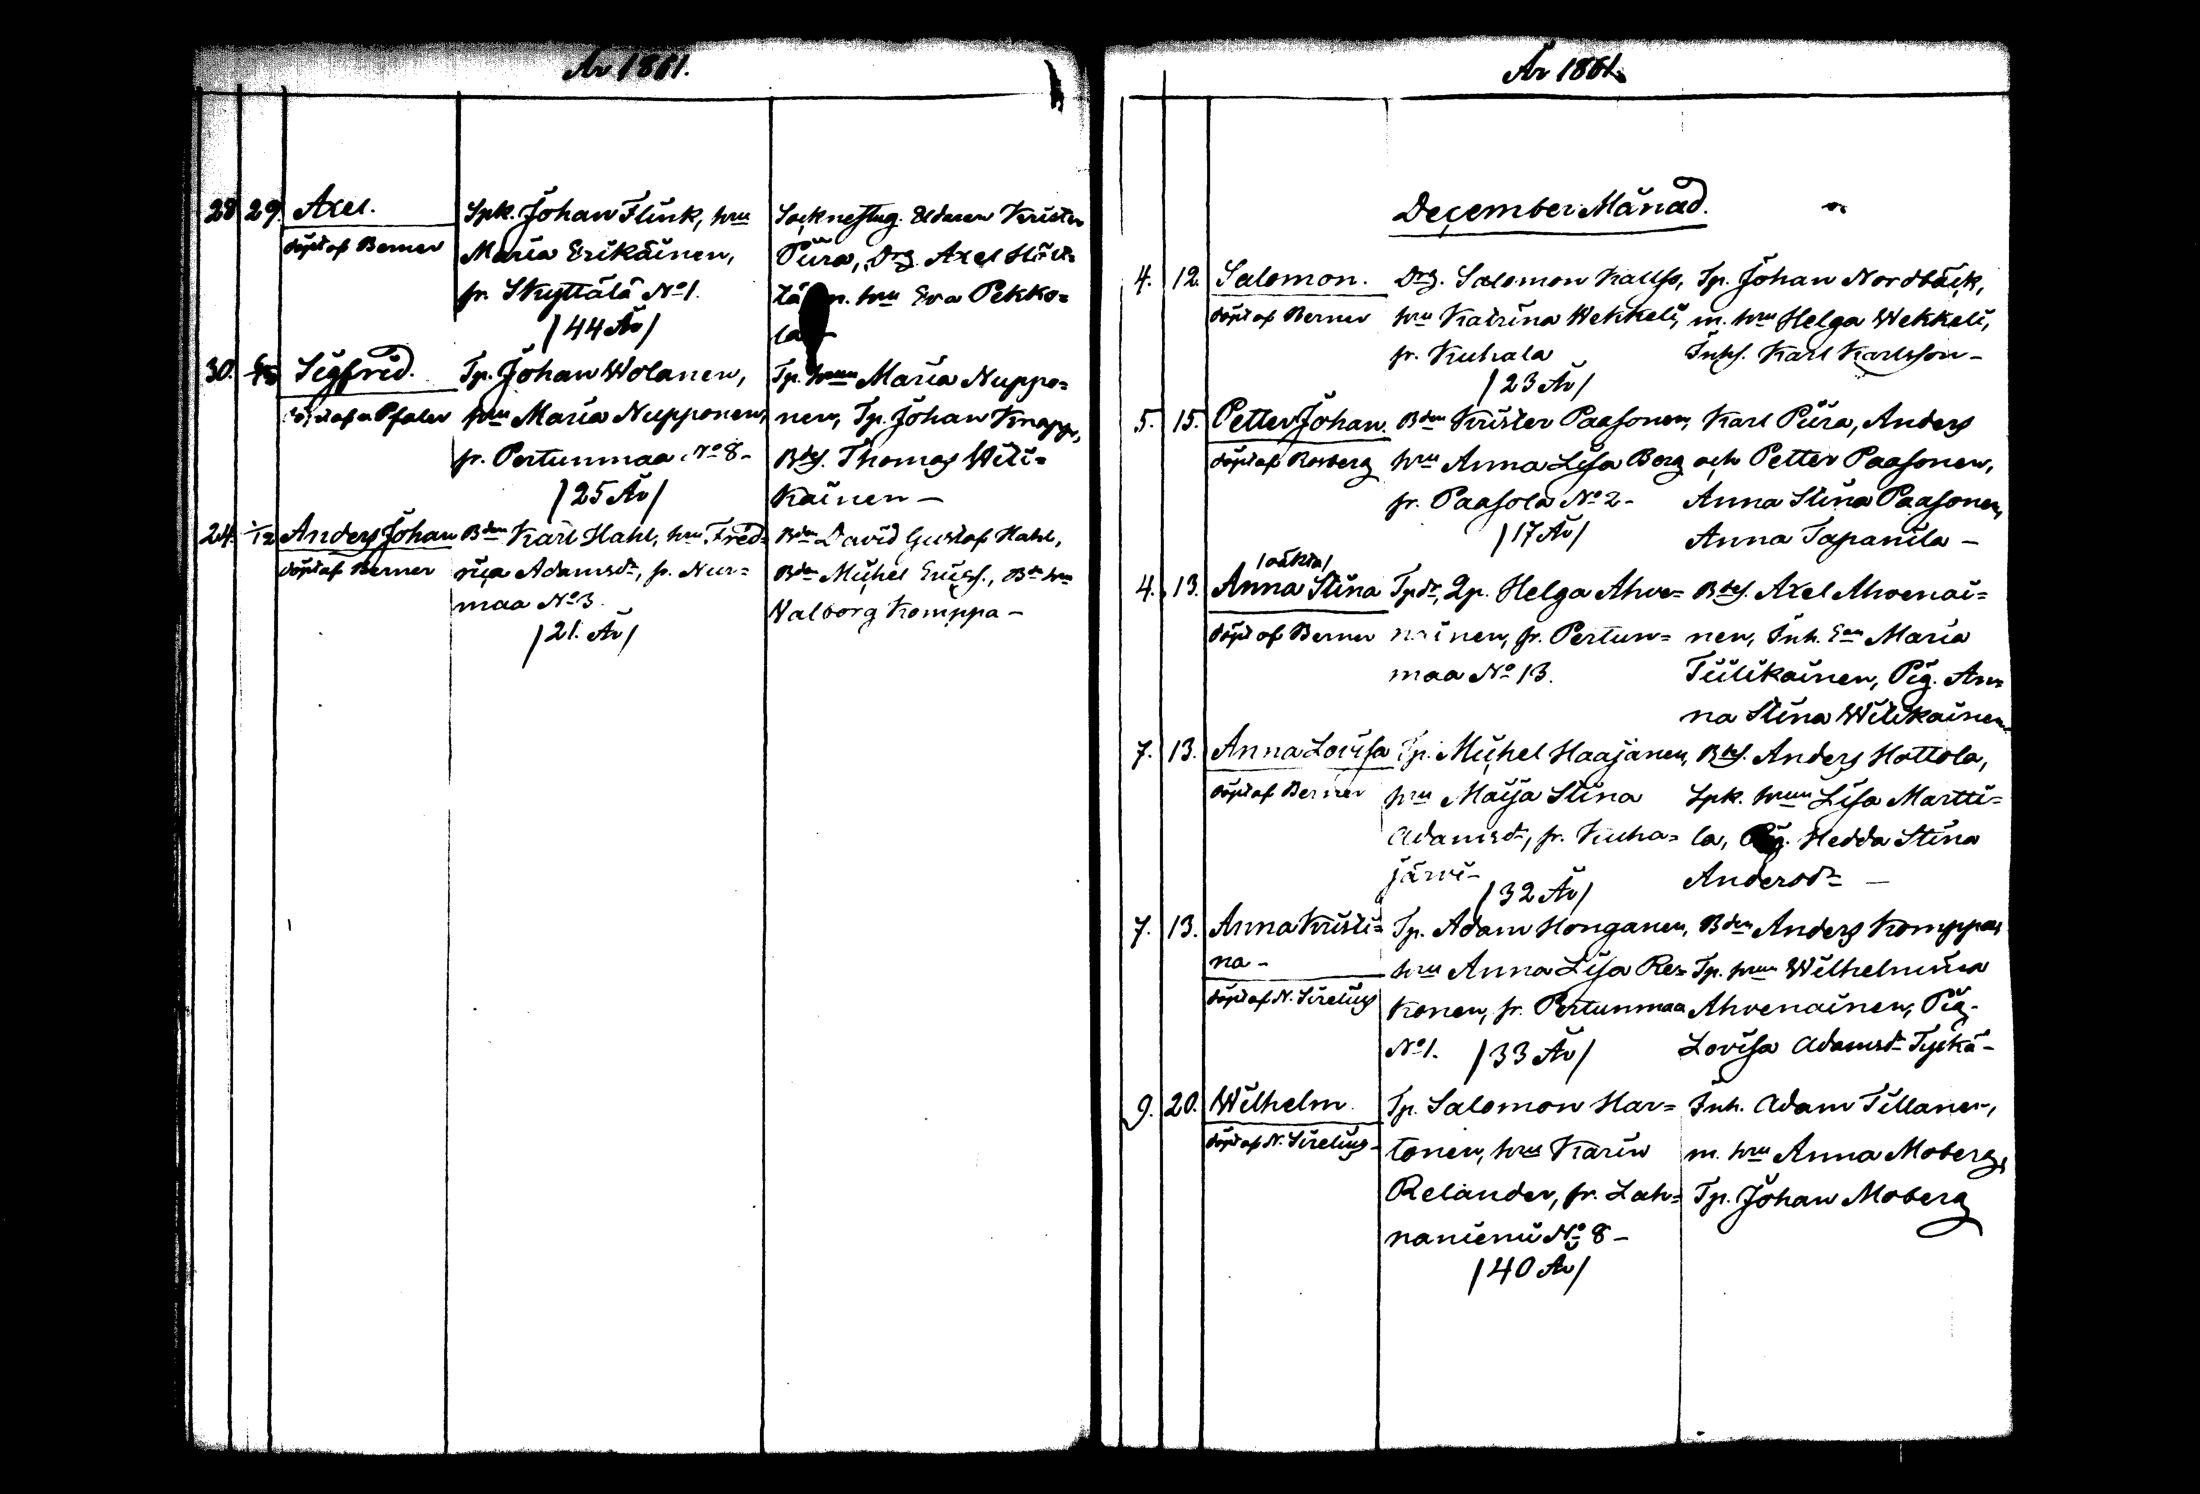 År 1861.
28 29. Axel.
döpt af Berner
Spk. Johan Flink, hru
Maria Erikäinen,
fr. Skyttälä No 1.
/44 År/
Socknestug. Eldaren Krister
Piira, Drg. Axel
m. hru Eva Pekko=
la
30. Sigfrid.
döpt af Pfaler
Tp. Johan Wolanen,
hru Maria Nupponen,
fr. Pertunmaa No 8-
/25 År/
Tp. hrun Maria Nuppo=
nen, Tp. Johan Knapp,
Bds. Thomas Witi=
kainen -
24. 1/12 Anders Johan
döpt af Berner
Bdn Karl Hahl, hru Fred=
rica Adamsdr, fr. Nur=
maa No 3.
/21. År/
Bdn David Gustaf Hahl,
Bdn Michel Ericss., Bde hru
Walborg Komppa -
År 1861.
December Månad.
4. 12. Salomon.
döpt af Berner
Drg. Salomon Kallss,
hru Katrina Wekkeli,
fr. Kuhala
/23 År/
Tp. Johan Nordbäck,
m. hru Helga Wekkeli,
Inhs. Karl Karlsson -
5. 15. Petter Johan.
döpt af Rosberg
Bdn Krister Paasonen,
hru Anna Lisa Borg
fr. Paasola No 2-
/17 År/
Karl Piira, Anders
och Petter Paasonen,
Anna Stina Paasonen,
Anna Tapanila -
/oäkta/
4. 13. Anna Stina
döpt af Berner
Tpdr, Qp. Helga Ahve=
nainen, fr. Pertun=
maa No 13.
Bds. Axel Ahvenai=
nen, Inh. Ean Maria
Tiilikainen, Pig. An=
na Stina Witikainen
7. 13. Anna Lovisa
döpt af Berner
Tp. Michel Haajanen,
hru Maija Stina
Adamsdr, fr. Kuha=
järvi-
/32 År/
Bds. Anders Hottola,
Spk. hrun Lisa Martti=
la, Pig. Hedda Stina
Andersdr -
7. 13. Anna Kristi=
na -
döpt af N. Sirelius
Tp. Adam Honganen,
hru Anna Lisa Res=
konen, fr. Pertunmaa
No 1. /33 År/
Bdn Anders Komppa,
Tp. hrun Wilhelmina
Ahvenainen, Pig.
Lovisa Adamsdr Tyskä-
9. 20. Wilhelm.
döpt af N. Sirelius-
Tp. Salomon Har=
tonen, hru Karin
Relander, fr. Lah=
naniemi No 8 -
/40 År/
Inh. Adam Tillanen,
m. hru Anna Moberg,
Tp. Johan Moberg